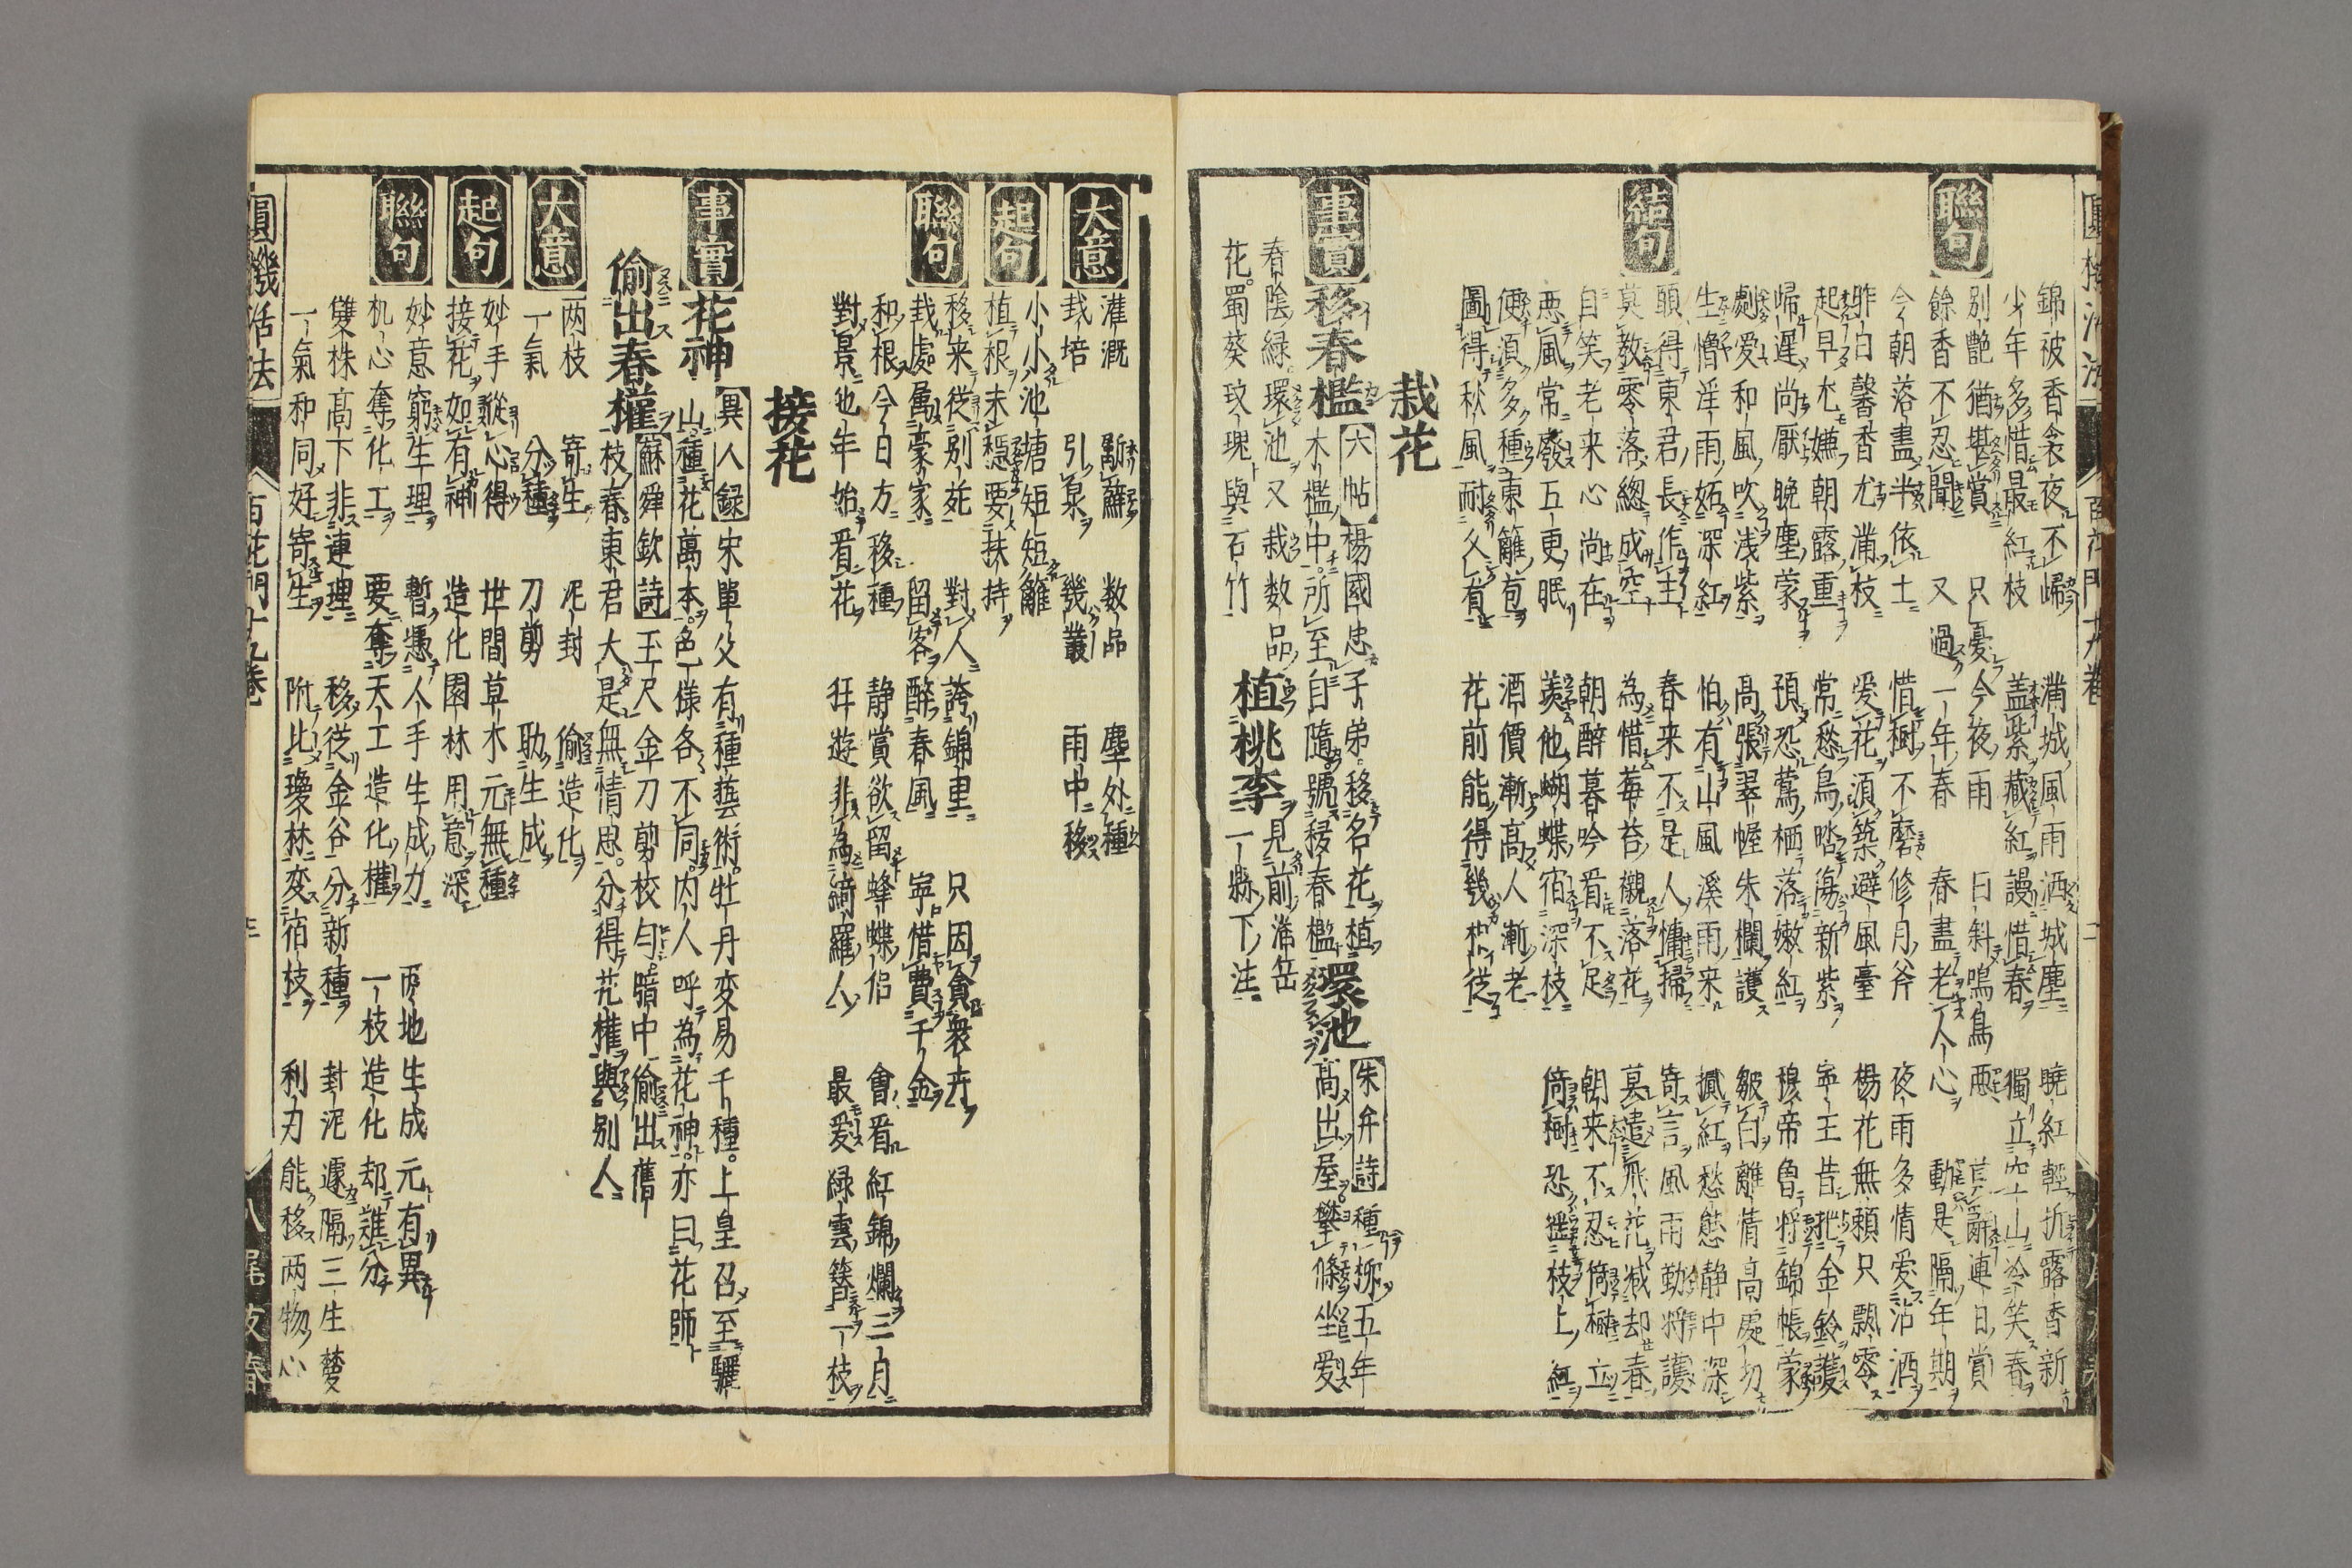 聯句
錦被香衾夜不歸 滿城風雨洒城塵 曉紅輕折露香新
少年多惜最紅枝 盖紫藏紅謾惜春 獨立空山冷笑春
别艷猶堪賞 只憂今夜雨 日斜鳴鳥悪 莫辭連日賞
餘香不忍聞 又過一年春 春盡老人心 動是隔年期
今朝落盡半依土 惜樹不磨修月斧 夜雨多情愛沾酒
昨日馨香尤滿枝 爱花須築避風臺 楊花無頼只飄零
起早尤嫌朝露重 常愁鳥踏傷新紫 寧王昔把金鈴護
歸遲尚厭晚塵蒙 預恐鶯栖落嫩紅 穆帝魯將錦帳蒙
劇愛和風吹浅紫 高張翠幄朱欄護 皺白離情高處切
生憎淫雨妬深紅 怕有山風溪雨来 攧紅愁態静中深
結句
頭得東君長作主 春来不是人慵掃 寄言風雨勤將護
莫教零落總成空 為惜莓苔襯落花 莫遣飛花减却春
自笑老来心尚在 朝醉暮吟看不足 朝来不忍倚檻立
悪風常廢五更眠 羨他蝴蝶宿深枝 倚樹恐揺枝上紅
便須多種東籬 酒價漸高人漸老
圖得秋風耐久看 花前能得幾 従
栽花
事實 移春檻 六帖 楊國忠子弟。移名花植
木檻中。所至自隨號移春檻 環池 朱弁詩 種栁五年
高出屋。攀條坐愛
春陰緑環池又栽数品
花。蜀葵玫瑰與石竹 見前滿岳
植桃李 一縣下注
大意
灌漑 斸蘚 数品 塵外種
栽培 引泉 幾叢 雨中移
起句
小小池塘短短籬
植根未穏要扶持
聯句
移来從别苑 對人誇錦里 只因貪衆卉
栽處属豪家 留客醉春風 寧惜費千金
和根今日方移種 静賞欲留蜂蝶侣 會看紅錦爛三月
對景他年始看花 狂遊非為綺羅人 最愛緑雲簇一枝
接花
事實 花神 異人録 宋單父有種藝術。牡丹变易千種。上皇召至驪
山種花萬本。色樣各不同。内人呼為花神。亦曰花師
偷出春權 蘇舜欽詩 玉尺金刀剪校勻。暗中偷出舊
枝春。東君大是無情思。分得花權與别人
大意
两枝 寄生 泥封 偷造化
一氣 分種 刀剪 助生成
起句
妙手縱心得 世間草木元無種
接花如有神 造化園林用意深
聯句
妙意窮生理 暫憑人手生成力 两地生成元有異
机心奪化工 要奪天工造化權 一枝造化却誰分
雙株髙下非連理 移從金谷分新種 封泥遽隔三生夢
一氣和同好寄生 附比瓊林変宿枝 利刃能移两物心
圓機活法 百花門十九卷 八尾友春